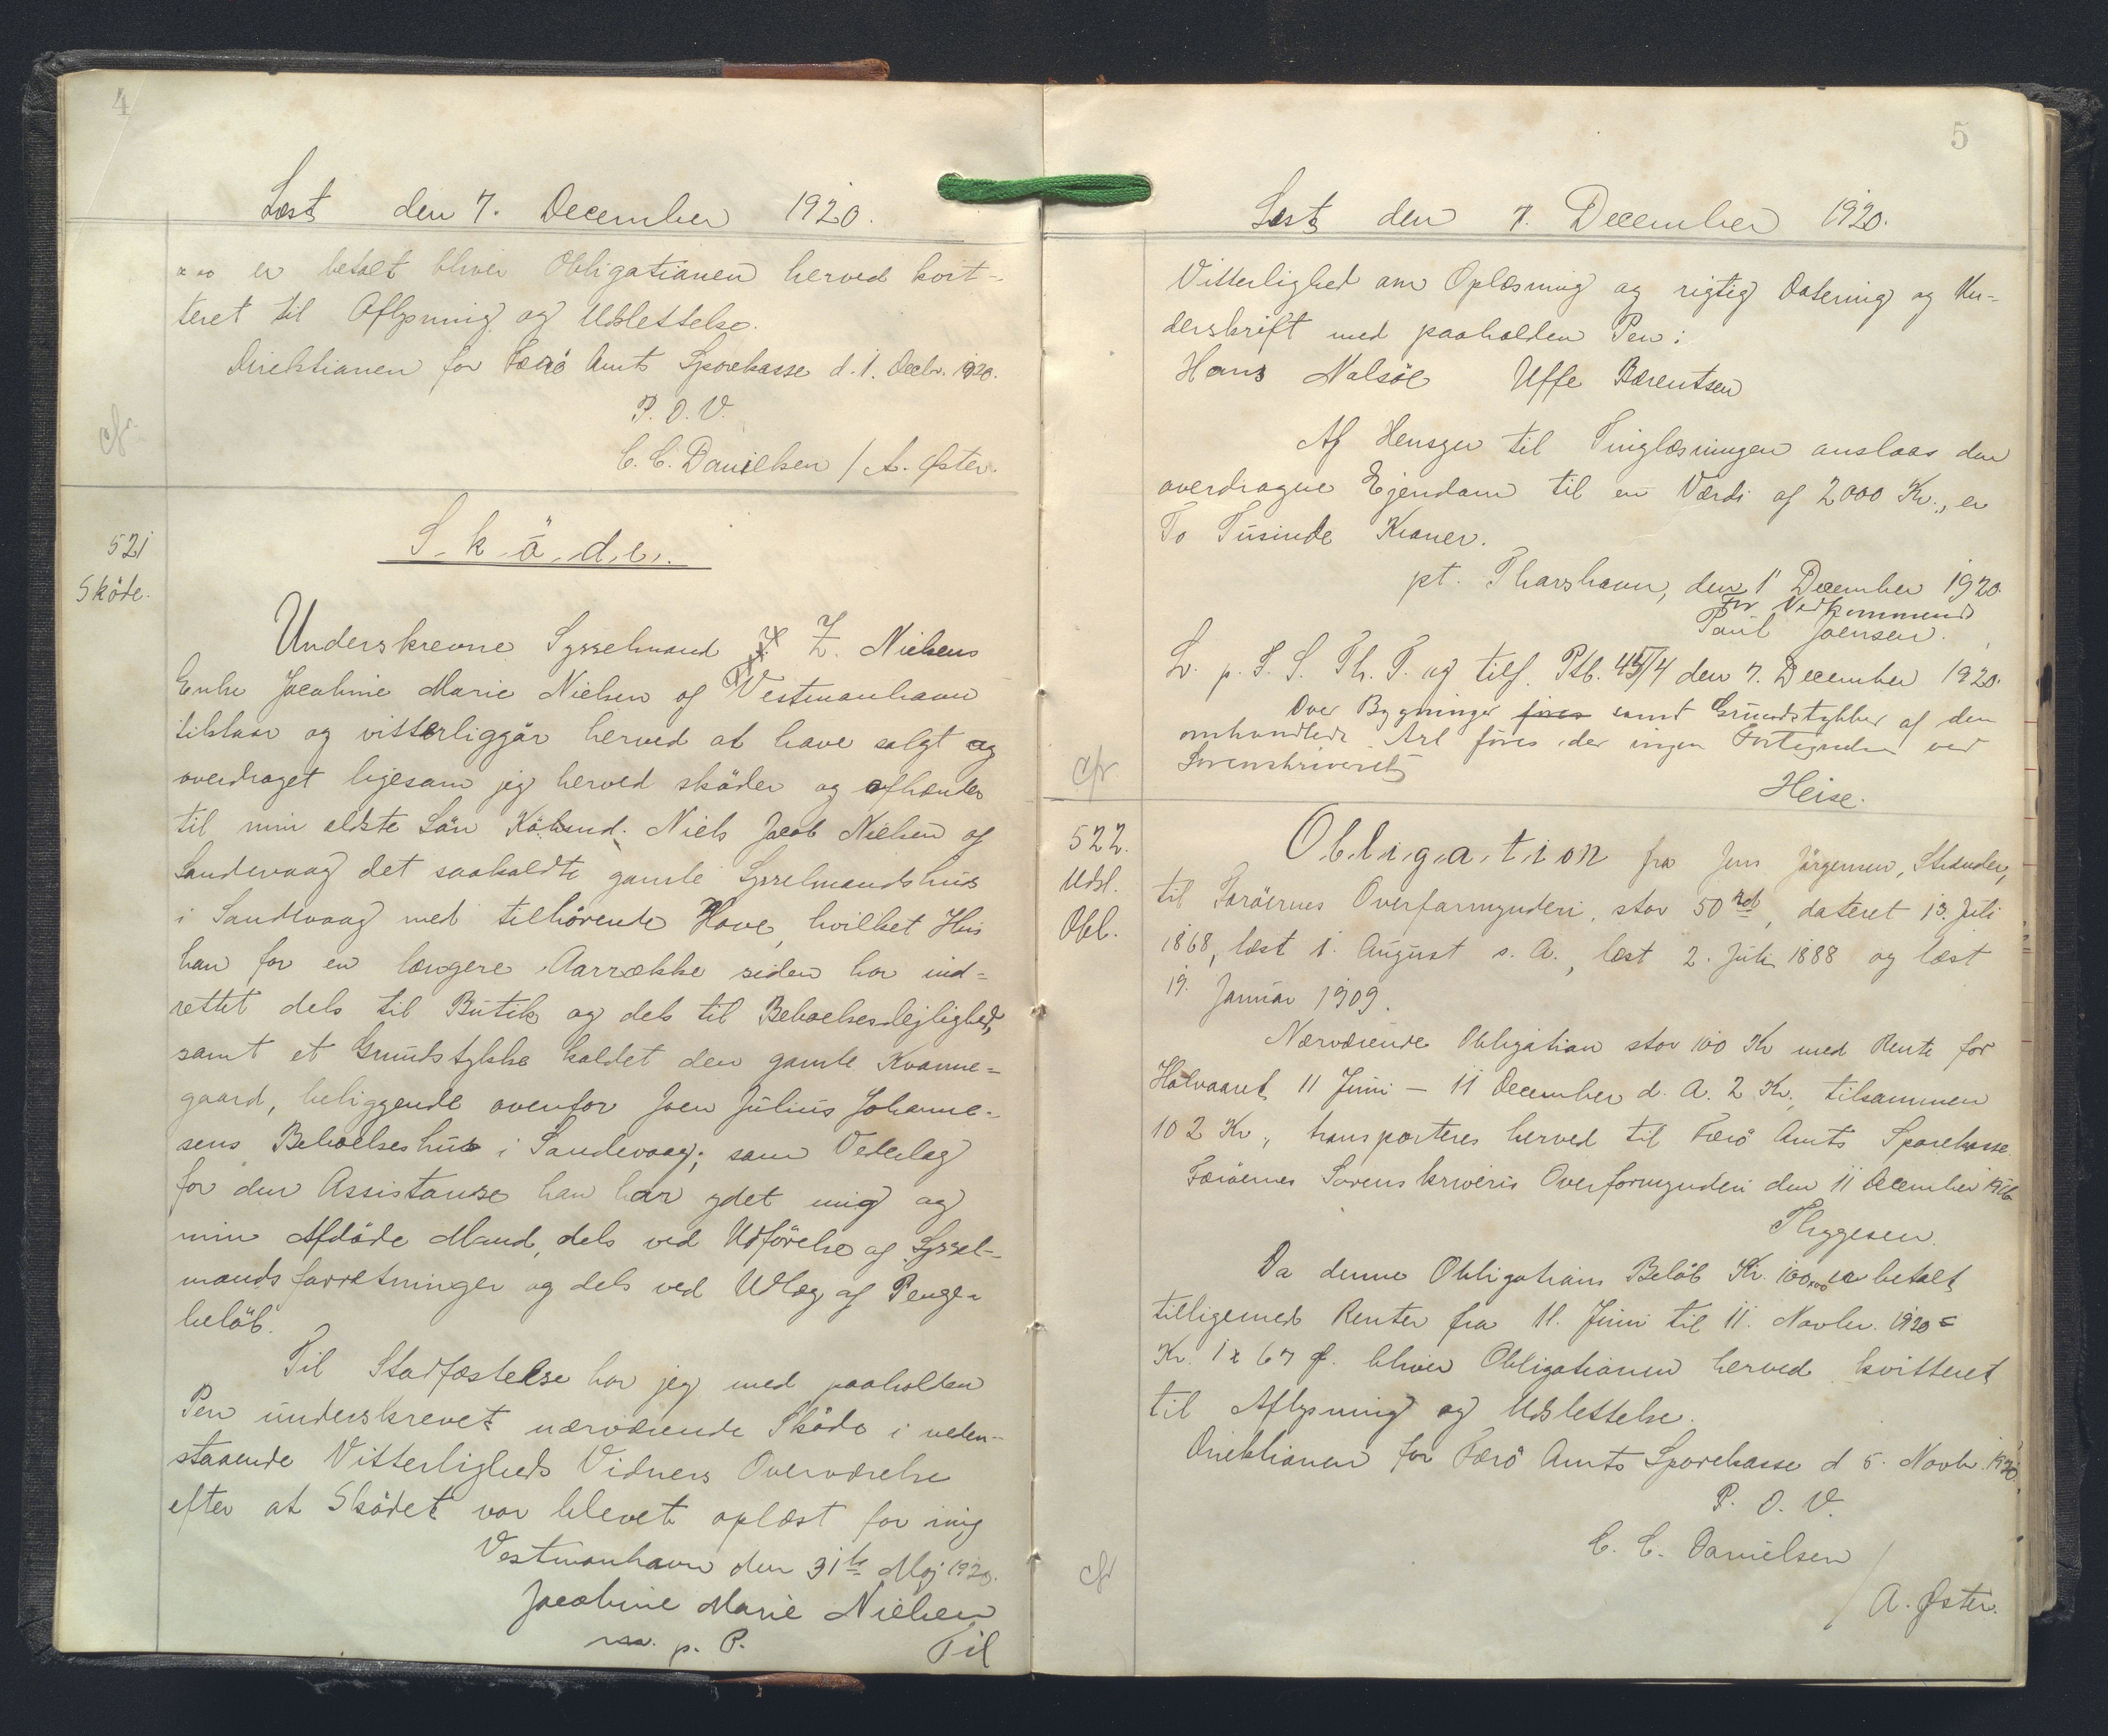 4
Læst den 7. December 1920.
er betalt bliver Obligationen herved kvit-
teret til Aflysning og Udslettelse.
Direktionen for Færø Amts Sparekasse d. 1. Decbr. 1920.
P. D. V.
cfr.
C. C. Danielsen / A. Øster.
521
Sköde.
Sköde.
Underskrevne Sysselmand Z. Nielsens
Enke Jacobine Marie Nielsen af Vestmanhavn
tilstaar og vitterliggör herved at have solgt og
overdraget ligesom jeg herved sköder og afhænder
til min ældste Sön Köbmd. Niels Jacob Nielsen af
Sandevaag det saakaldte gamle Sysselmandshus
i Sandevaag med tilhörende Have, hvilket Hus
han for en længere Aarrække siden har ind-
rettet dels til Butik og dels til Beboelseslejlighed,
samt et Grundstykke kaldet den gamle Kvanne-
gaard, beliggende ovenfor Joen Julius Johanne-
sens Beboelseshus i Sandevaag; som Vederlag
for den Assistanse han har ydet mig og
min Afdöde Mand, dels ved Udförelse af Syssel-
mandsforretninger og dels ved Udlæg af Penge-
belöb.
Til Stadfæstelse har jeg med paaholden
Pen underskrevet nærværende Sköde i neden-
staaende Vitterligheds Vidners Overværelse
efter at Sködet var blevet oplæst for mig
Vestmanhavn den 31te Maj 1920.
Jacobine Marie Nielsen
m. p. P.
Til
5
Læst den 7. December 1920.
Vitterlighed om Oplæsning og rigtig Datering og Un-
derskrift med paaholden Pen:
Hans Nalsöe Uffe Bærentsen
Af Hensyn til Tinglæsningen anslaas den
overdragne Ejendom til en Værdi af 2000 Kr., er
To Tusinde Kroner.
pt. Thorshavn, den 1' December 1920
For Vedkommende
Paul Joensen.
L. p. S. S. Th. T. og tilf. Ptb. 45/4 den 7. December 1920.
Over Bygninger föres samt Grundstykker af den
omhandlede Art föres der ingen Fortegnelse ved
Sorenskriveriet
cfr
Heise.
522.
Udsl.
Obl.
Obligation fra Jens Jörgensen, Strænder,
til Færöernes Overformynderi, stor 50 rd, dateret 13. Juli
1868, læst 1. August s. A., læst 2. Juli 1888 og læst
19. Januar 1909.
Nærværende Obligation stor 100 Kr med Rente for
Halvaaret 11 Juni - 11 December d. A. 2 Kr., tilsammen
102 Kr, transporteres herved til Færö Amts Sparekasse.
Færöernes Sorenskriveris Overformynderi den 11 December
Thygesen.
Da denne Obligations Belöb Kr. 100,00 er betalt
tilligemed Renter fra 11. Juni til 11. Novbr. 1920 =
Kr. 1 x 67 ø. bliver Obligationen herved kvitteret
til Aflysning og Udslettelse.
Direktionen for Færö Amts Sparekasse d 5. Novbr. 1920.
P. D. V.
cfr
C. C. Danielsen
/ A. Øster.